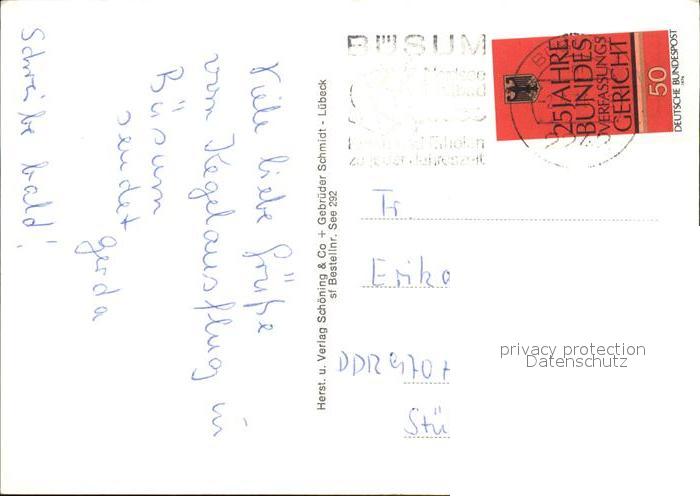 Viele liebe Grüße
vom Kegelausflug in
Büsum
sendet
Gerda
Schreibe bald!
Herst. u. Verlag Schöning & Co + Gebrüder Schmidt - Lübeck
sf Bestellnr. See 292
BÜSUM
zu jeder Jahreszeit
25 JAHRE
BUNDES
VERFASSUNGS
GERICHT
50
DEUTSCHE BUNDESPOST
Fr.
Erika
DDR 9707
Stü
privacy protection
Datenschutz